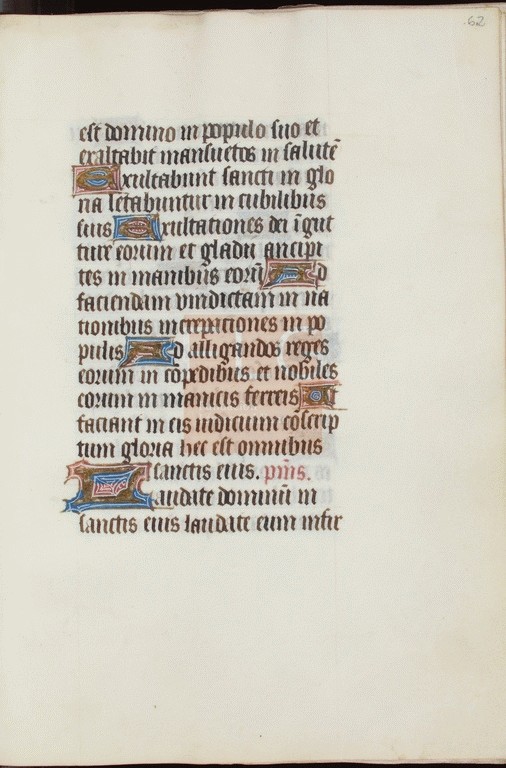 62
est domino in populo suo et
exaltabit mansuetos in salutē
Exultabunt sancti in glo
ria letabuntur in cubilibus
suis Exultationes dei ī gut
ture eorum et gladii ancipi
tes in manibus eorū Ad
faciendam vindictam in na
tionibus increpationes in po
pulis Ad alligandos reges
eorum in cōpedibus et nobiles
eorum in manicis ferreis Ut
faciant in eis iudicium cōscrip
tum gloria hec est omnibus
sanctis eius. p̄ms.
Laudate dominū in
sanctis eius laudate eum in fir